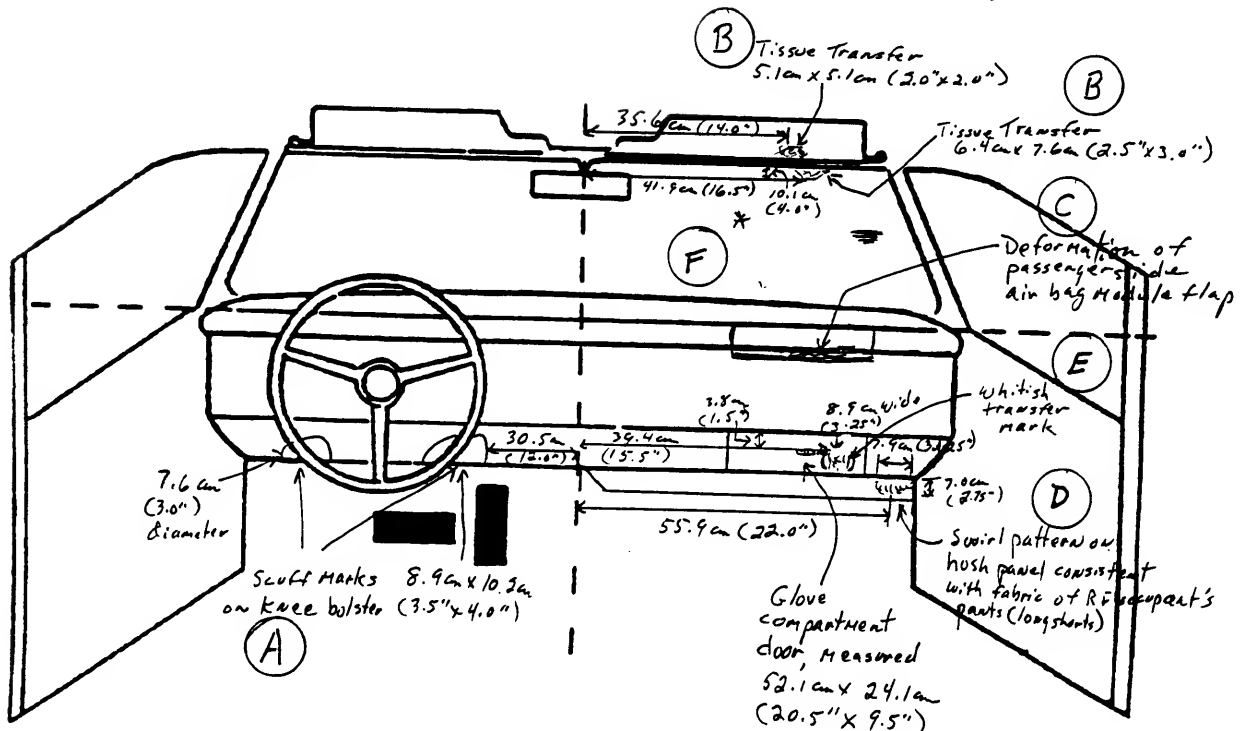 B
Tissue Transfer
5.1cm x 5.1cm (2.0"x2.0")
B
Tissue Transfer
6.4cm x 7.6cm (2.5"x3.0")
35.6cm (14.0")
41.9cm (16.5")
10.1cm
(4.0")
C
Deformation of
passenger side
air bag module flap
F
E
Whitish
transfer
mark
3.8cm
(1.5")
8.9cm wide
(3.25")
30.5cm
(12.0")
39.4cm
(15.5")
7.9cm (3.25")
7.0cm
(2.75")
7.6cm
(3.0")
diameter
55.9cm (22.0")
D
Swirl pattern on
hush panel consistent
with fabric of RF occupant's
pants (long shorts)
Scuff Marks
on knee bolster
8.9cm x 10.2cm
(3.5"x4.0")
A
Glove
compartment
door, measured
52.1cm x 24.1cm
(20.5" x 9.5")